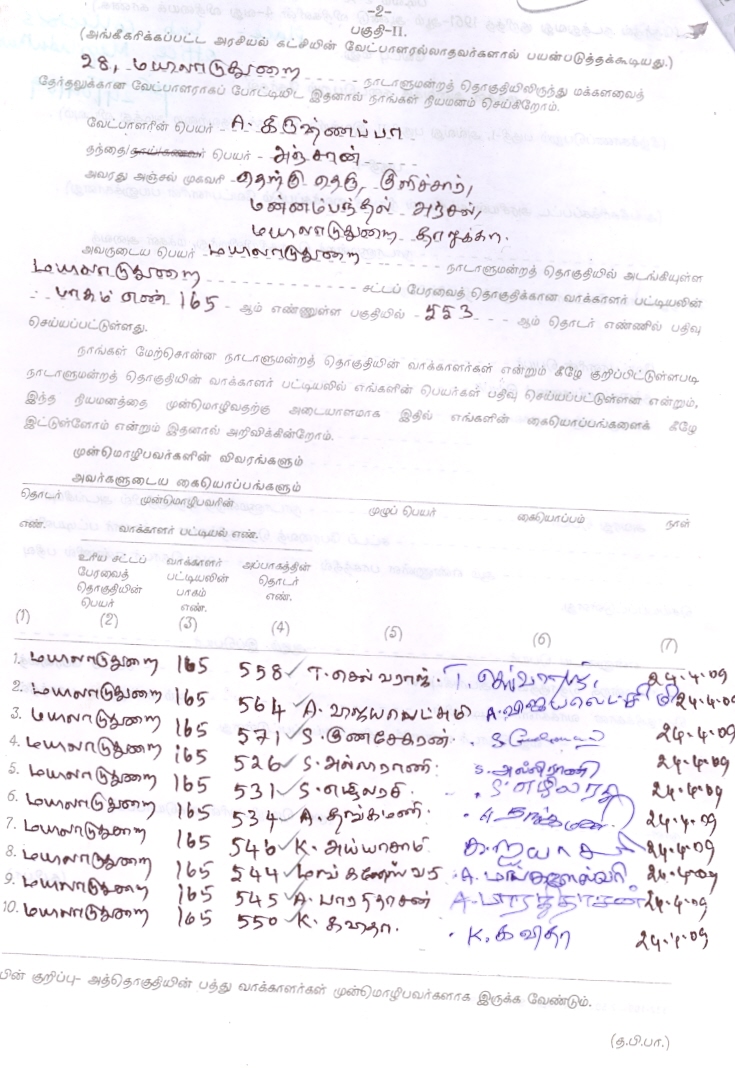 -2-
பகுதி-II.
(அங்கீகரிக்கப்பட்ட அரசியல் கட்சியின் வேட்பாளரல்லாதவர்களால் பயன்படுத்தக்கூடியது.)
28, மயிலாடுதுறை நாடாளுமன்றத் தொகுதியிலிருந்து மக்களவைத்
தேர்தலுக்கான வேட்பாளராகப் போட்டியிட இதனால் நாங்கள் நியமனம் செய்கிறோம்.
வேட்பாளரின் பெயர் - A. கிருஷ்ணப்பா
தந்தை/தாய்/கணவர் பெயர் - அஞ்சான்
அவரது அஞ்சல் முகவரி - தெற்கு தெரு, குளிச்சார்,
மன்னம்பந்தல் அஞ்சல்,
மயிலாடுதுறை தாலுக்கா.
அவருடைய பெயர் - மயிலாடுதுறை நாடாளுமன்றத் தொகுதியில் அடங்கியுள்ள
மயிலாடுதுறை சட்டப் பேரவைத் தொகுதிக்கான வாக்காளர் பட்டியலின்
பாகம் எண் 165 - ஆம் எண்ணுள்ள பகுதியில் - 553 - ஆம் தொடர் எண்ணில் பதிவு
செய்யப்பட்டுள்ளது.
நாங்கள் மேற்சொன்ன நாடாளுமன்றத் தொகுதியின் வாக்காளர்கள் என்றும் கீழே குறிப்பிட்டுள்ளபடி
நாடாளுமன்றத் தொகுதியின் வாக்காளர் பட்டியலில் எங்களின் பெயர்கள் பதிவு செய்யப்பட்டுள்ளன என்றும்,
இந்த நியமனத்தை முன்மொழிவதற்கு அடையாளமாக இதில் எங்களின் கையொப்பங்களைக் கீழே
இட்டுள்ளோம் என்றும் இதனால் அறிவிக்கின்றோம்.
முன்மொழிபவர்களின் விவரங்களும்
அவர்களுடைய கையொப்பங்களும்
தொடர் முன்மொழிபவரின் முழுப் பெயர் கையொப்பம் நாள்
எண். வாக்காளர் பட்டியல் எண்.
உரிய சட்டப் வாக்காளர் அப்பாகத்தின்
பேரவைத் பட்டியலின் தொடர்
தொகுதியின் பாகம் எண்.
பெயர் எண்.
(1) (2) (3) (4) (5) (6) (7)
1. மயிலாடுதுறை 165 558 T. செல்வராஜ். T. செல்வராஜ், 24-4-09
2. மயிலாடுதுறை 165 564 A. விஜயலெட்சுமி A. விஜயலெட்சுமி 24-4-09
3. மயிலாடுதுறை 165 571 S. குணசேகரன். 24-4-09
4. மயிலாடுதுறை 165 526 S. அல்லிராணி. S. அல்லிராணி 24-4-09
5. மயிலாடுதுறை 165 531 S. எழிலரசி S. எழிலரசி 24-4-09
6. மயிலாடுதுறை 165 534 A. தங்கமணி. A. தங்கமணி 24-4-09
7. மயிலாடுதுறை 165 546 K. அய்யாசாமி 24-4-09
8. மயிலாடுதுறை 165 544 மங்களேஸ்வரி A. மங்களேஸ்வரி 24-4-09
9. மயிலாடுதுறை 165 545 A. பாரதிதாசன் A. பாரதிதாசன் 24-4-09
10. மயிலாடுதுறை 165 550 K. கவிதா. K. கவிதா 24-4-09
யின் குறிப்பு- அத்தொகுதியின் பத்து வாக்காளர்கள் முன்மொழிபவர்களாக இருக்க வேண்டும்.
(த.பி.பா.)